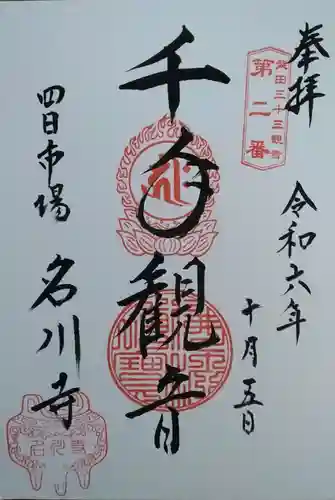 奉拝
第二番
三十三観音
令和六年
十月五日
千手観音
四日市場
名川寺